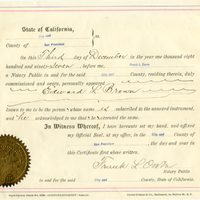 State of California,
City and
County of San Francisco
On this Third day of December in the year one thousand eight hundred and ninety-seven before me,
a Notary Public in and for the said County, residing therein, duly
commissioned and sworn, personally appeared
Edward L. Brown
known to me to be the person whose name is subscribed to the annexed instrument, and
he acknowledged to me that he executed the same.
In Witness Whereof, I have hereunto set my hand, and affixed
my Official Seal, at my office, in the City and County
of San Francisco the day and year in this
Certificate first above written.
Notary Public
in and for said City and County, State of California.